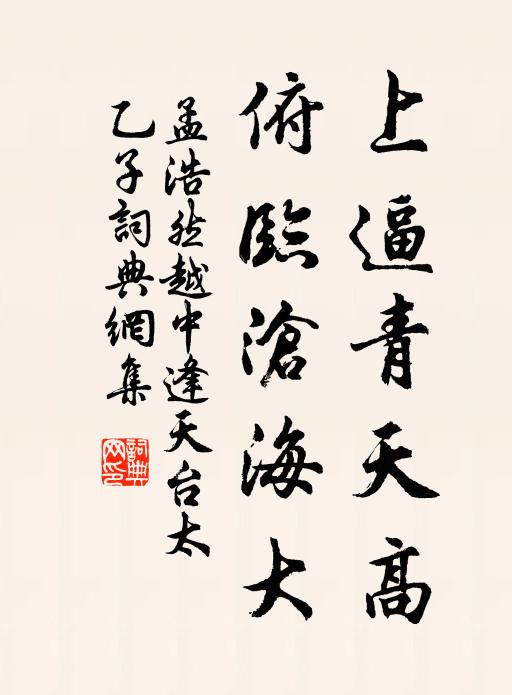 上逼青天高
俯臨滄海大
孟浩然越中逢天台太
乙子詞典網集
詞典
网印